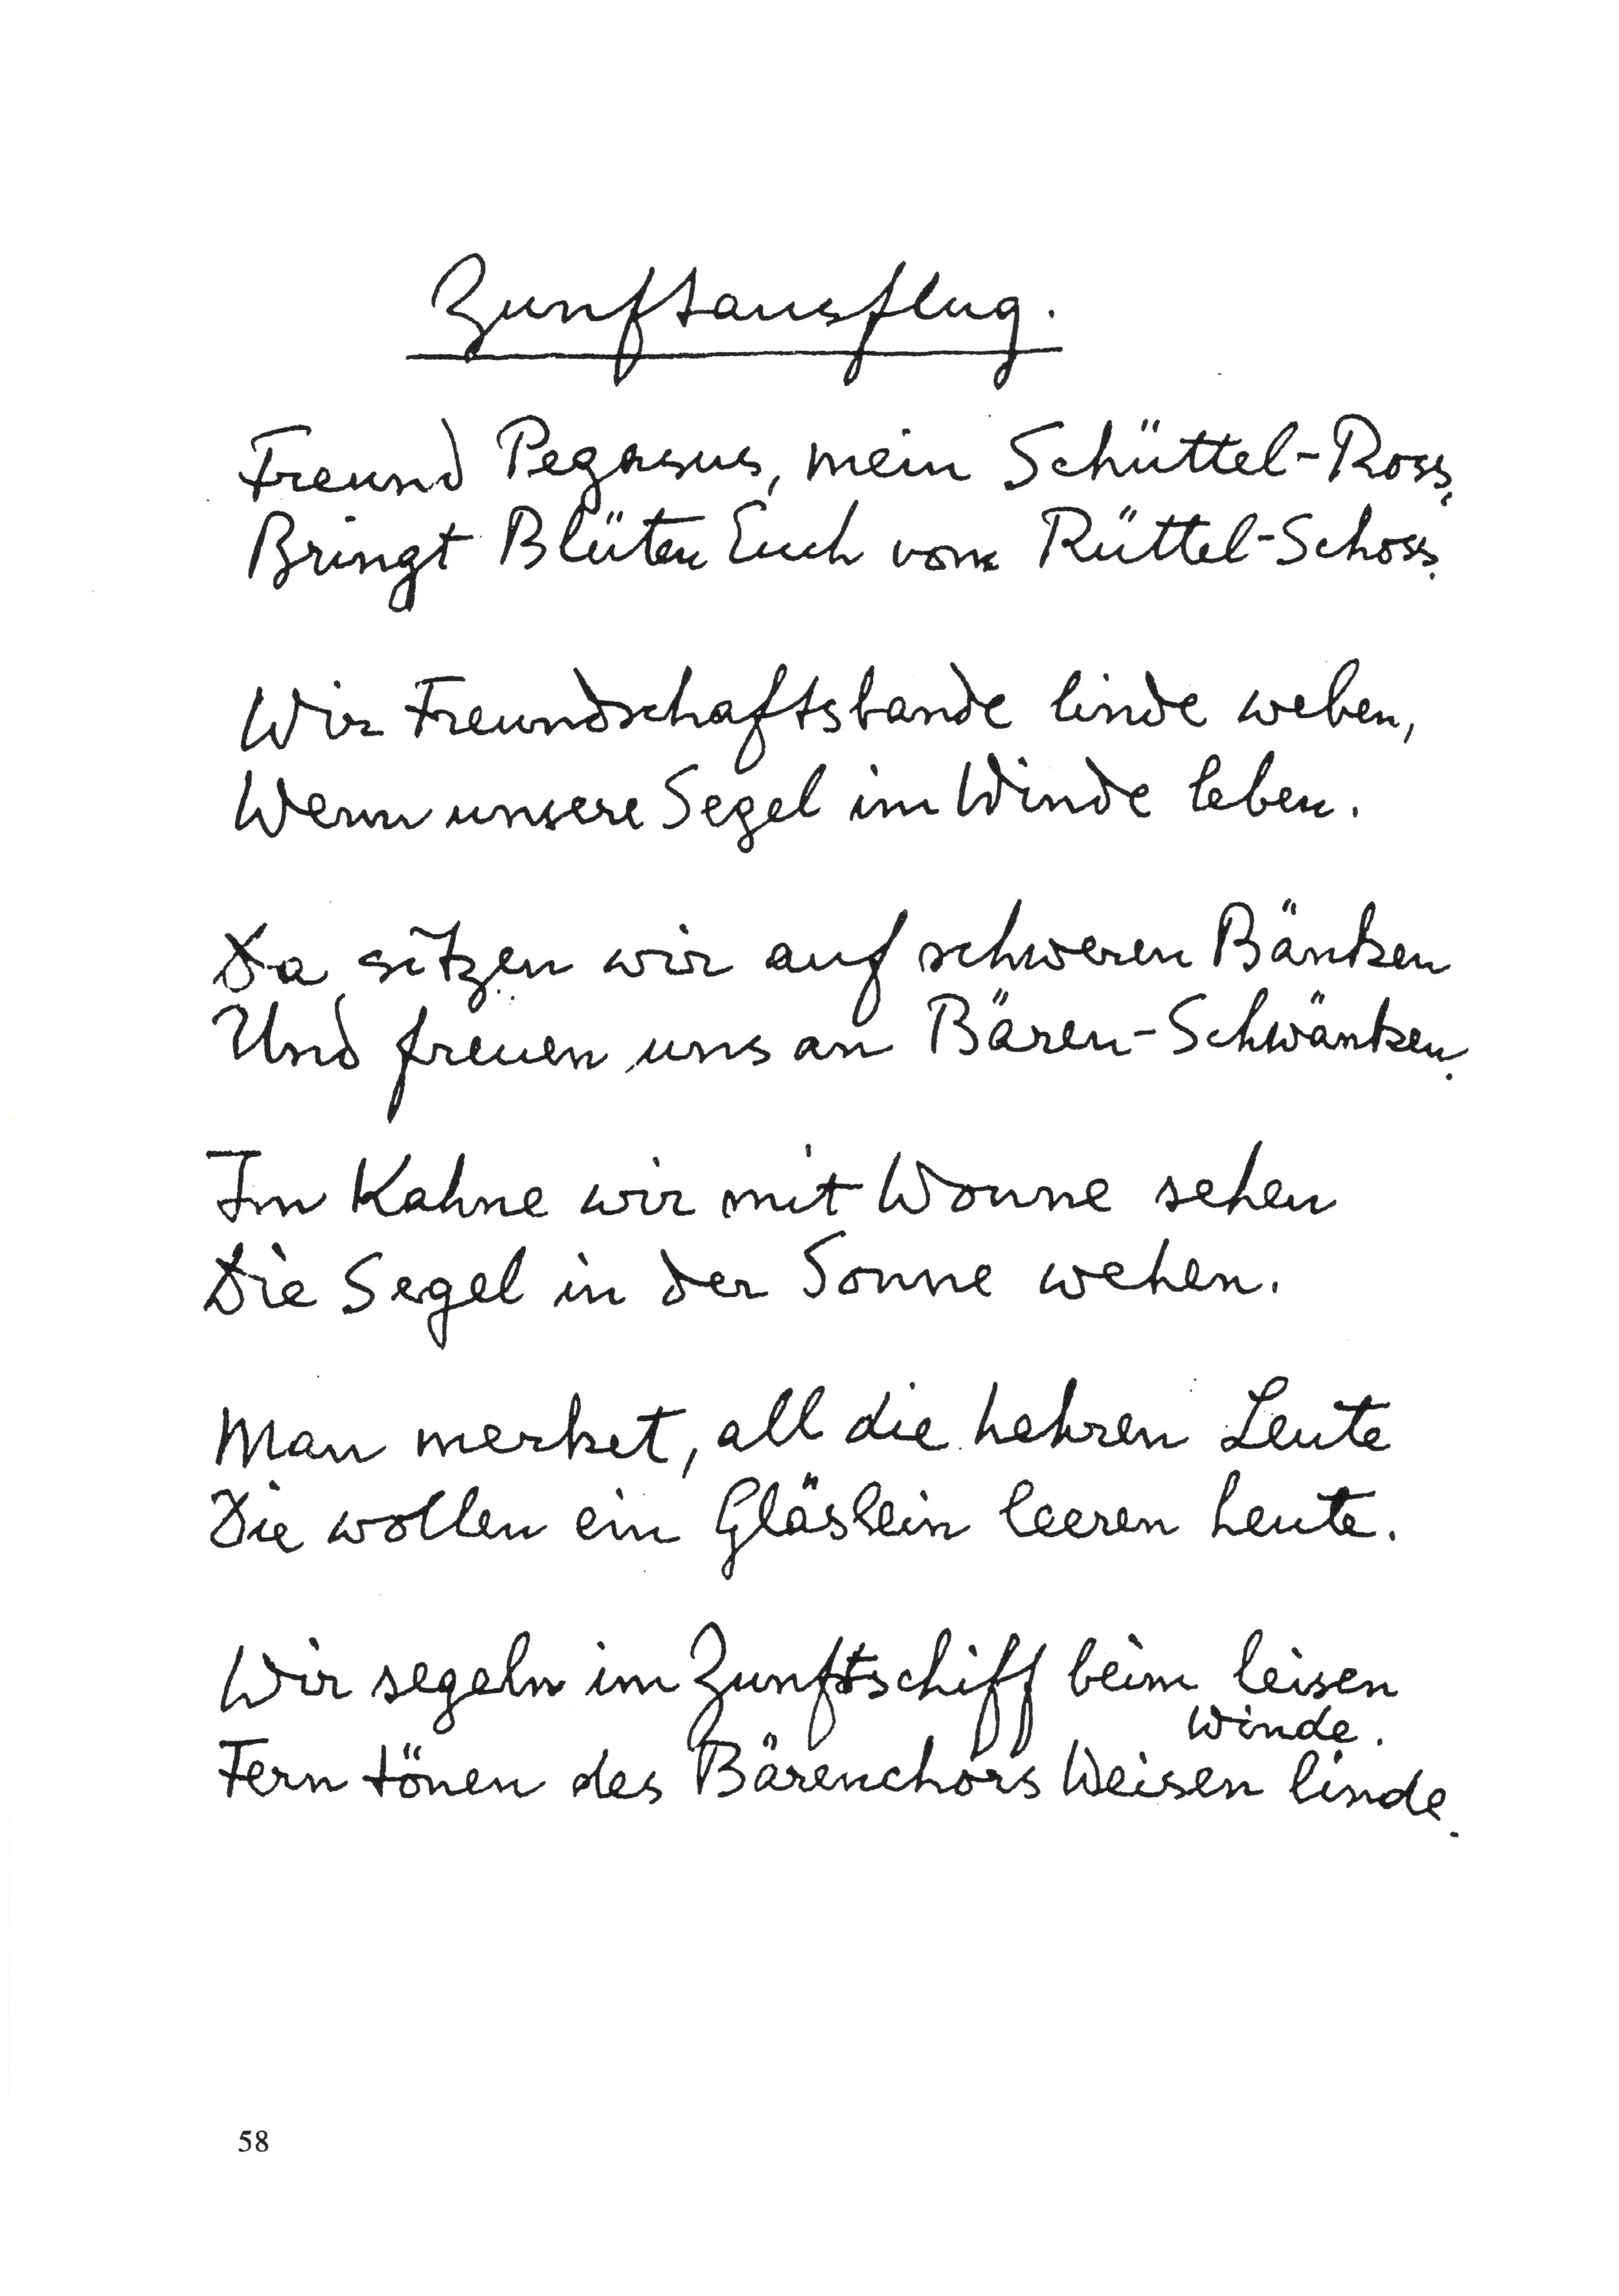 Zunftausflug.
Freund Pegasus, mein Schüttel-Ross,
Bringt Blüten Euch vom Rüttel-Schoss.
Wir Freundschaftsbande linde weben,
Wenn unsere Segel im Winde leben.
Da sitzen wir auf schweren Bänken
Und freuen uns an Bären-Schwänken.
Im Kahne wir mit Wonne sehen
Die Segel in der Sonne wehen.
Man merket, all die hehren Leute
Die wollen ein Gläslein leeren heute.
Wir segeln im Zunftschiff beim leisen
Winde.
Fern tönen des Bärenchors Weisen linde.
58